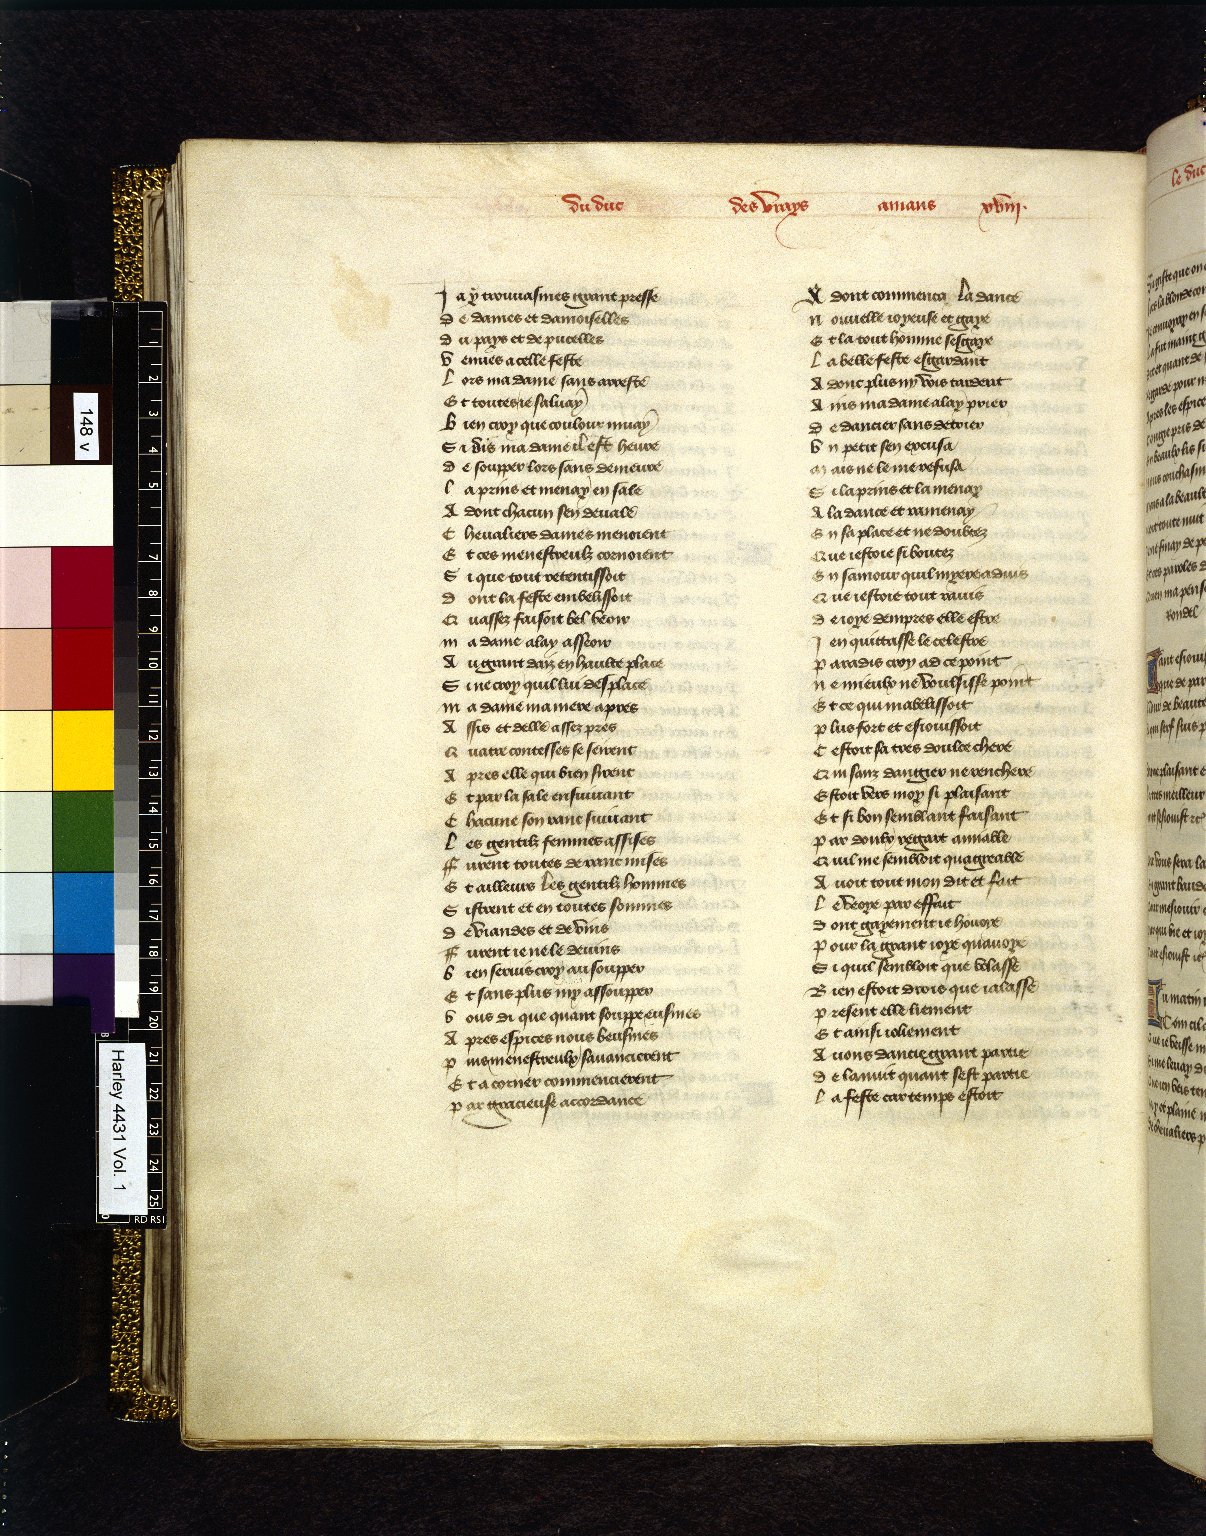 du duc des vrays amans xviii.
J a y trouuasmes grant presse
D e dames et damoiselles
D u pays et de pucelles
V enues a celle feste
L ors ma dame sans arreste
E t toutes ie saluay
B ien croy que coulour muay
S i dis ma dame il est heure
D e soupper lors sans demeure
L a prins et menay en sale
A dont chacun sen deuale
C heualiers dames menoient
E t ces menestreulx cornoient
S i que tout retentissoit
D ont la feste embelissoit
Q uassez faisoit bel veoir
M a dame alay asseoir
A u grant daiz en haulte place
S i ne croy quil lui desplace
M a dame ma mere apres
A ssis et delle assez pres
Q uatre contesses se seirent
A pres elle qui bien sirent
E t par la sale ensuiuant
C hacune son ranc suiuant
L es gentilz femmes assises
Ff urent toutes de ranc mises
E t ailleurs les gentilz hommes
S istrent et en toutes sommes
D e viandes et de vins
Ff urent ie ne le deuins
B ien seruis croy au soupper
E t sans plus my assoupper
V ous di que quant souppe eusmes
A pres espices nous beusmes
P uis menestreulx sauancierent
E t a corner commencierent
P ar gracieuse accordance
A dont commenca la dance
N ouuelle ioyeuse et gaye
E t la tout homme sesgaye
L a belle feste esgardant
A donc plus ny vois tardent
A ins ma dame alay prier
D e dancier sans detrier
V n petit sen excusa
M ais ne le me refusa
S i la prins et la menay
A la dance et ramenay
E n sa place et ne doubtez
Q ue iestoie si boutez
E n samour quil myere aduis
Q ue iestoie tout rauis
D e ioye dempres elle estre
J en quittasse le celestre
P aradis croy ad ce point
N e mieulx ne voulsisse point
E t ce qui mabelissoit
P lus fort et esiouissoit
C estoit sa tres doulce chere
Q ui sanz dangier ne renchere
Estoit vers moy si plaisant
E t si bon semblant faisant
P ar doulx regart amiable
Q uil me sembloit quagreable
A uoit tout mon dit et fait
L e veoye par effait
D ont gayement ie houoye
P our la grant ioye quauoye
S i quil sembloit que volasse
B ien estoit drois que ialasse
P resent elle liement
E t ainsi ioliement
A uons dancie grant partie
D e la nuit quant sest partie
L a feste car temps estoit
le duc
148 v
Harley 4431 Vol. 1